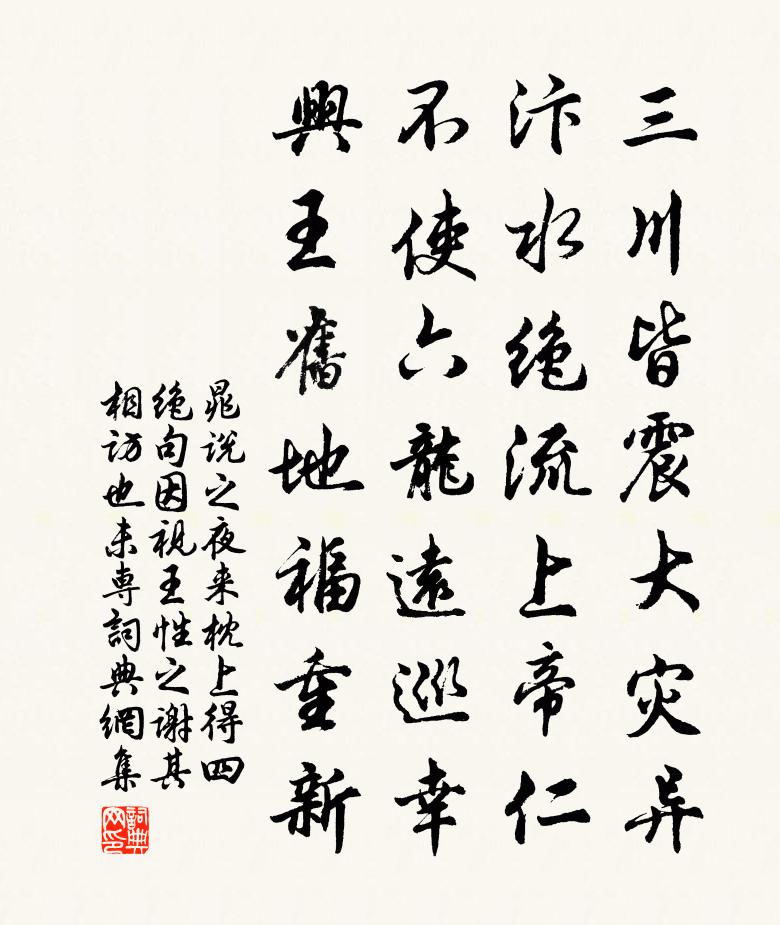 三川皆震大灾异
汴水绝流上帝仁
不使六龍遠巡幸
興王舊地福重新
晁说之夜来枕上得四
绝句因视王性之谢其
相访也末専詞典網集
詞典网印